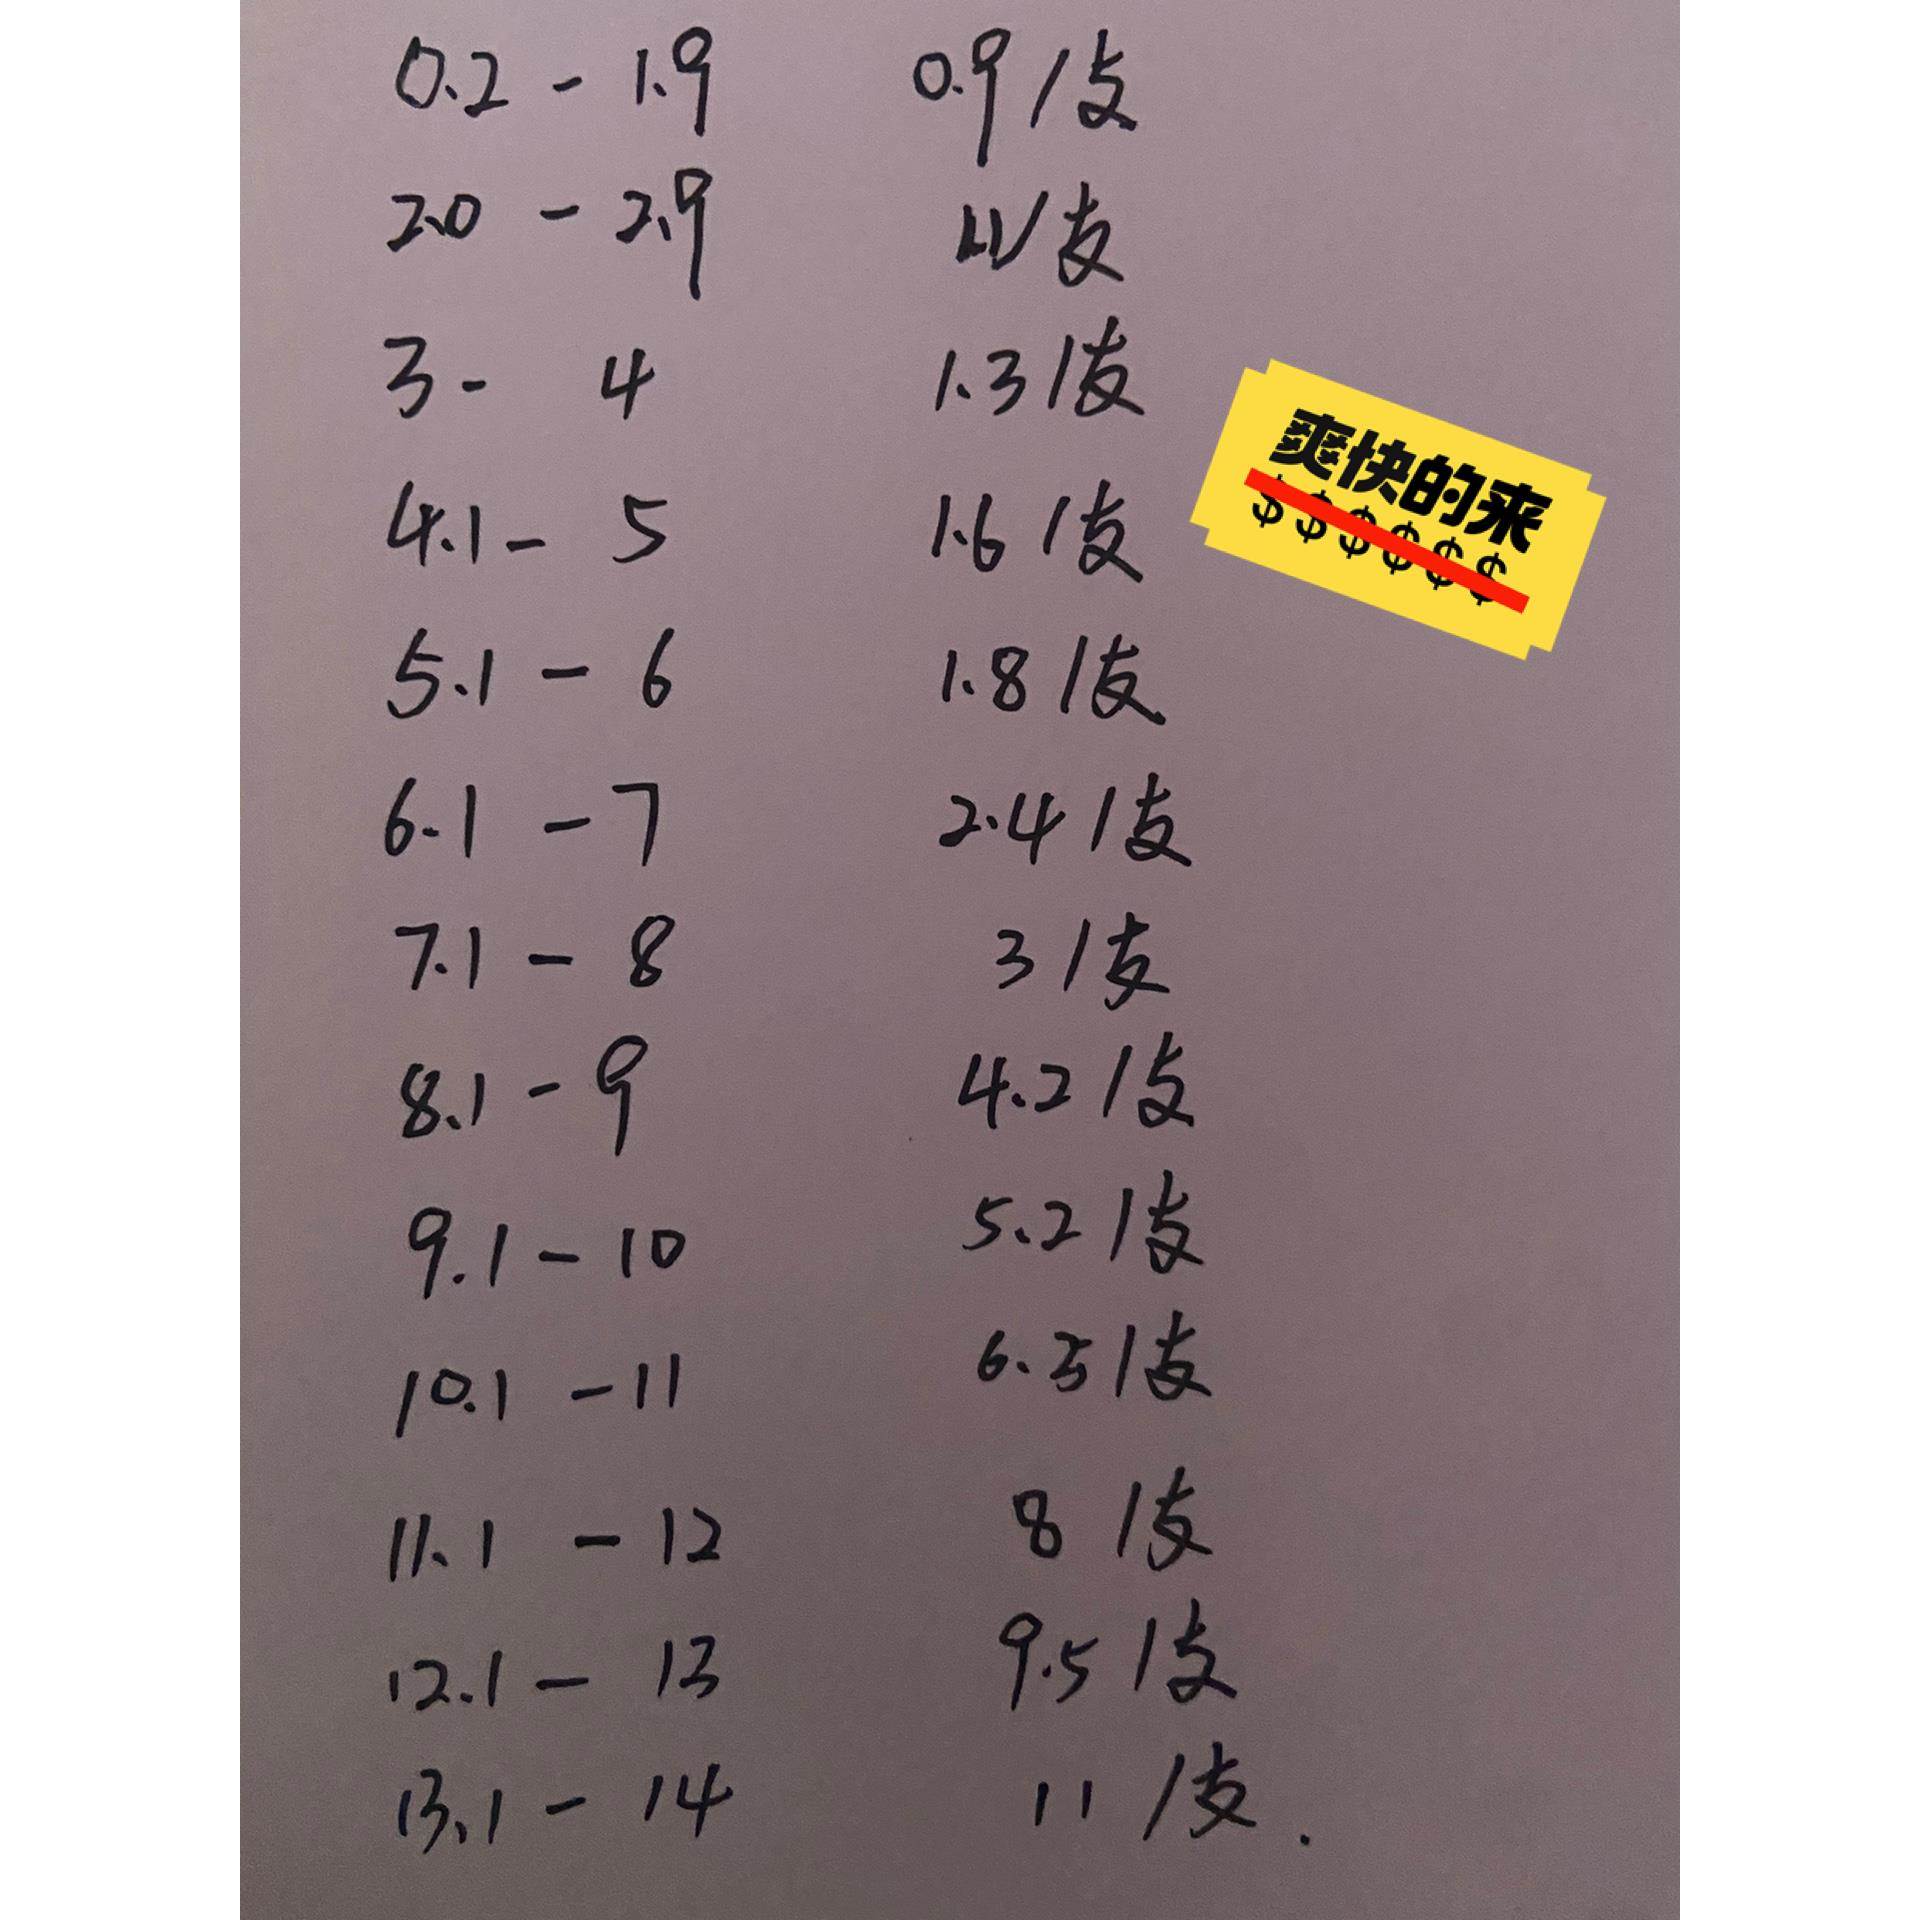 0.2 - 1.9 0.9/支
2.0 - 2.9 /支
3 - 4 1.3/支
4.1 - 5 1.6/支
爽快的来
$$$$$$
5.1 - 6 1.8/支
6.1 - 7 2.4/支
7.1 - 8 3/支
8.1 - 9 4.2/支
9.1 - 10 5.2/支
10.1 - 11 6./支
11.1 - 12 8/支
12.1 - 13 9.5/支
13.1 - 14 11/支.